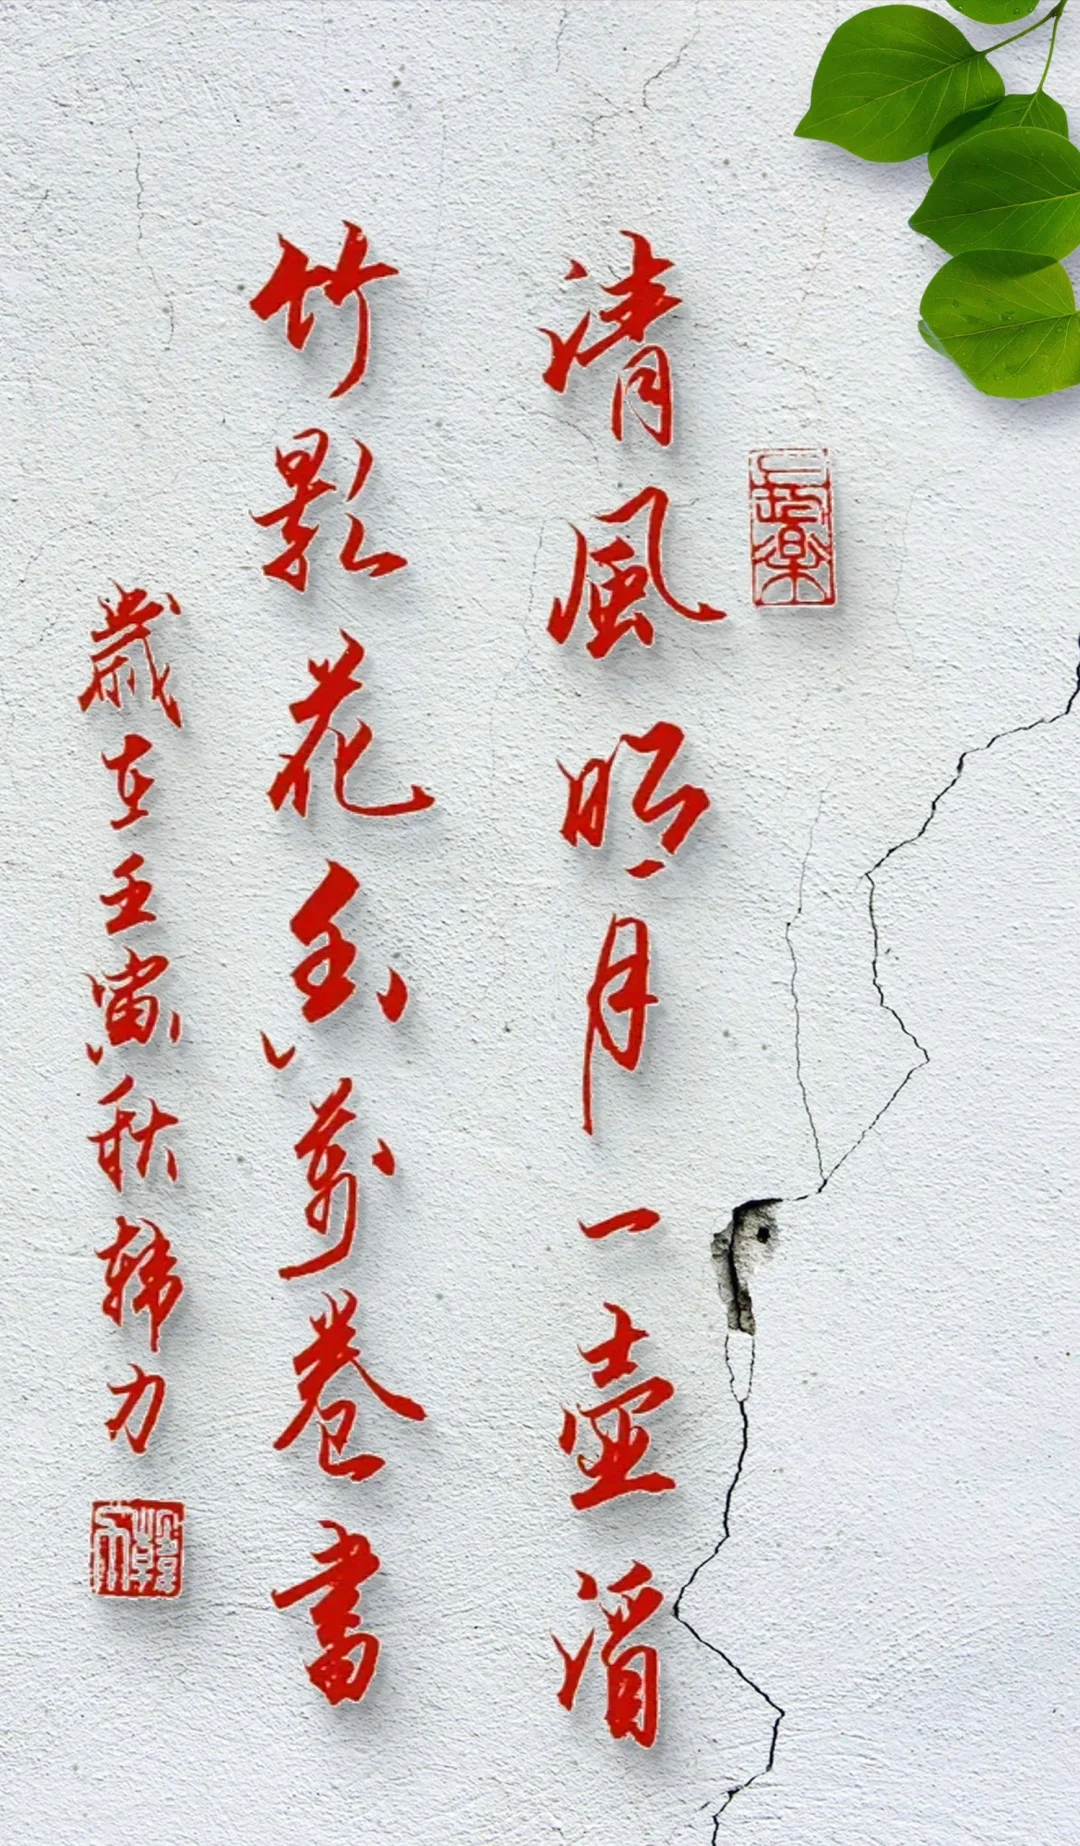 清風明月一壺酒
竹影花香萬卷書
歲在壬寅秋韓力